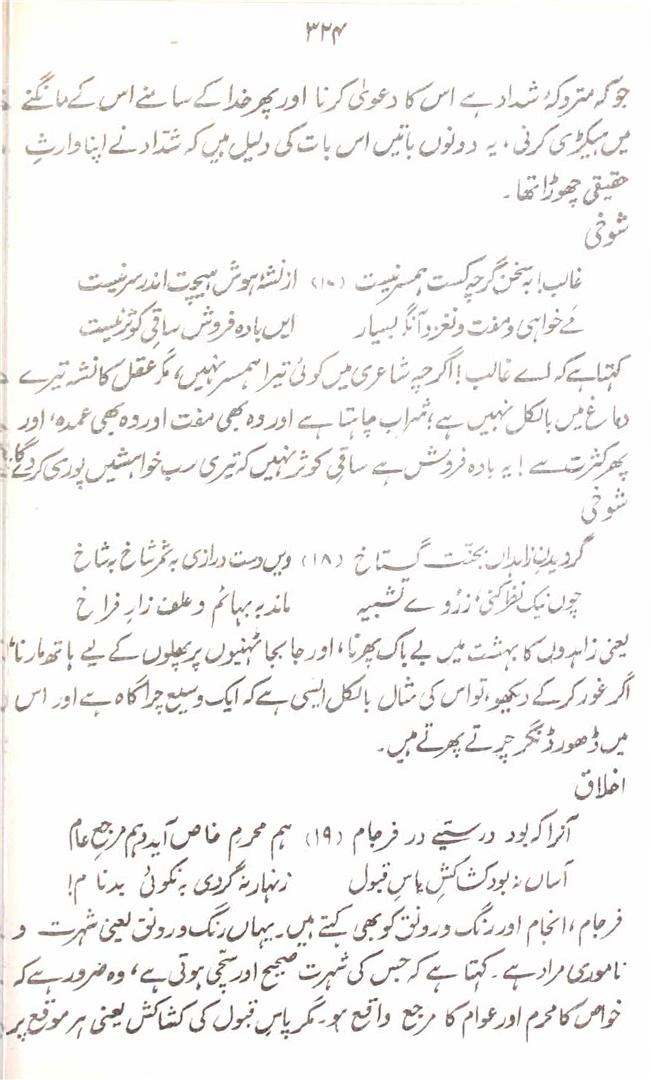 ۳۲۴
جو کہ متروکۂ شداد ہے اس کا دعویٰ کرنا اور پھر خدا کے سامنے اس کے مانگنے
میں ہیکڑی کرنی، یہ دونوں باتیں اس بات کی دلیل ہیں کہ شدّاد نے اپنا وارثِ
حقیقی چھوڑا تھا۔
شوخی
غالب! بہ سخن گرچہ کست ہمسر نیست (۱۷) از نشۂ ہوش ہیچت اندر سر نیست
مے خواہی و مفت و نغز و آنگہ بسیار ایں بادہ فروش ساقیِ کوثر نیست
کہتا ہے کہ اے غالب! اگرچہ شاعری میں کوئی تیرا ہمسر نہیں، مگر عقل کا نشہ تیرے
دماغ میں بالکل نہیں ہے؛ شراب چاہتا ہے اور وہ بھی مفت اور وہ بھی عمدہ، اور
پھر کثرت سے! یہ بادہ فروش ہے ساقیِ کوثر نہیں کہ تیری سب خواہشیں پوری کر دے گا۔
شوخی
گردیدنِ زاہداں بجنّت گستاخ (۱۸) ویں دست درازی بہ ثمر شاخ بہ شاخ
چوں نیک نظر کنی، ز روے تشبیہ ماند بہ بہائم و علف زارِ فراخ
یعنی زاہدوں کا بہشت میں بے باک پھرنا، اور جا بجا ٹہنیوں پر پھلوں کے لیے ہاتھ مارنا،
اگر غور کر کے دیکھو، تو اس کی مثال بالکل ایسی ہے کہ ایک وسیع چراگاہ ہے اور اس
میں ڈھور ڈنگر چرتے پھرتے ہیں۔
اخلاق
آنرا کہ بود درستیے در فرجام (۱۹) ہم محرمِ خاص آید و ہم مرجعِ عام
آساں نہ بود کشاکشِ پاسِ قبول زنہار نہ گردی بہ نکوئی بدنام!
فرجام، انجام اور رنگ و رونق کو بھی کہتے ہیں۔ یہاں رنگ و رونق یعنی شہرت و
ناموری مراد ہے۔ کہتا ہے کہ جس کی شہرت صحیح اور سچی ہوتی ہے، وہ ضرور ہے کہ
خواص کا محرم اور عوام کا مرجع واقع ہو۔ مگر پاسِ قبول کی کشاکش یعنی ہر موقع پر